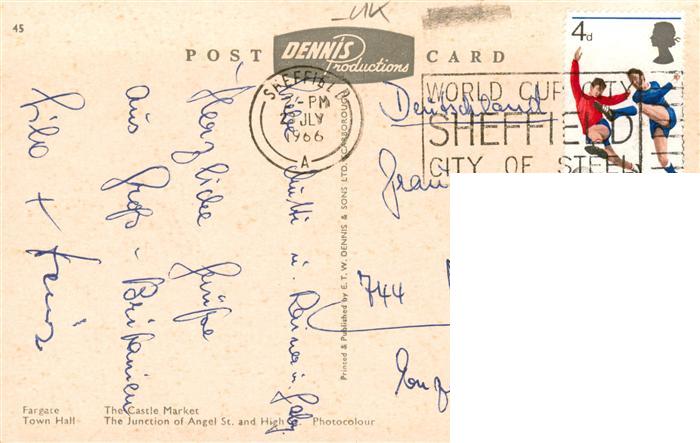 UK
45
POST
DENNIS
Productions
CARD
4d
SHEFFIELD
-PM
JLY
1966
A
WORLD CUP CITY
SHEFFIELD
CITY OF STEEL
Deutschland
Frau
744
Liebe Mutti u.
Herzliche Grüße
aus Groß-Britanien
+
Printed & Published by E. T. W. DENNIS & SONS LTD. SCARBOROUGH
Fargate The Castle Market
Town Hall The Junction of Angel St. and High Photocolour